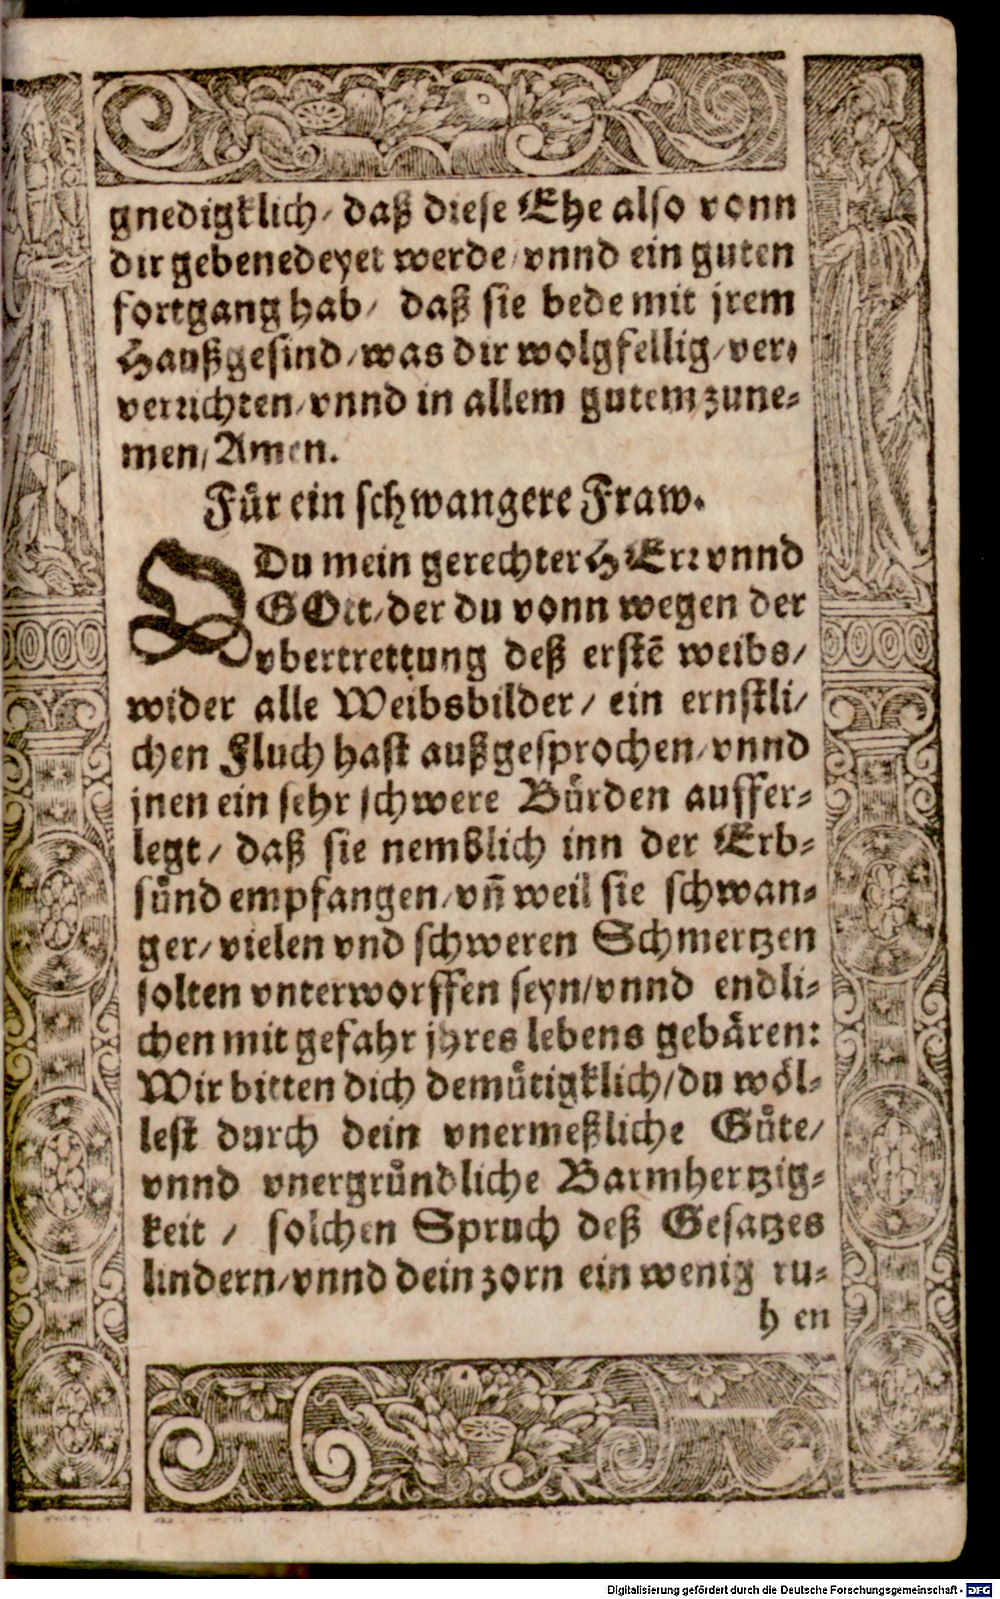 gnedigklich/ daß diese Ehe also vonn
dir gebenedeyet werde/ vnnd ein guten
fortgang hab/ daß sie bede mit jrem
Haußgesind/ was dir wolgfellig/ ver-
verrichten/ vnnd in allem gutem zune-
men/ Amen.
Für ein schwangere Fraw.
O Du mein gerechter HErr vnnd
GOtt/ der du vonn wegen der
vbertrettung deß erstē weibs/
wider alle Weibsbilder/ ein ernstli/
chen Fluch hast außgesprochen/ vnnd
jnen ein sehr schwere Bürden auffer-
legt/ daß sie nemblich inn der Erb-
sünd empfangen/ vñ weil sie schwan-
ger/ vielen vnd schweren Schmertzen
solten vnterworffen seyn/ vnnd endli-
chen mit gefahr jhres lebens gebären:
Wir bitten dich demütigklich/ du wöl-
lest durch dein vnermeßliche Güte/
vnnd vnergründliche Barmhertzig-
keit / solchen Spruch deß Gesatzes
lindern/ vnnd dein zorn ein wenig ru-
hen
Digitalisierung gefördert durch die Deutsche Forschungsgemeinschaft - DFG